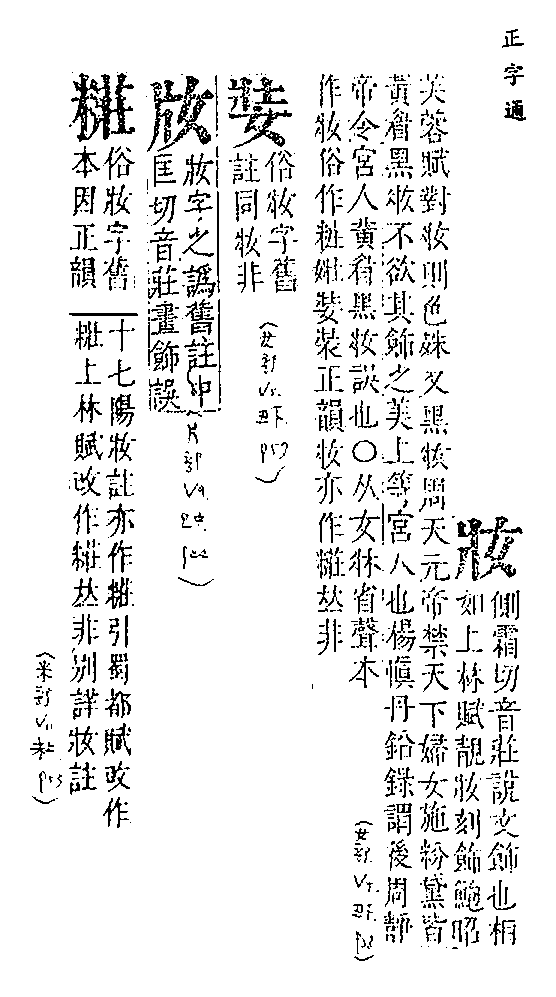 正字通
妝
側霜切音莊說文飾也相
如上林賦靚妝刻飾鮑昭
芙蓉賦對妝則色殊又黑妝周天元帝禁天下婦女施粉黛皆
黃眉黑妝不欲其飾之美上等宮人也楊愼丹鉛錄謂後周靜
帝令宮人黃眉黑妝誤也〇从女牀省聲本
作妝俗作粧娤裝正韻妝亦作糚𠀤非
(女部 V5. 丑下. p8)
娤
俗妝字舊
註同妝非
(女部 V5. 丑下. p57)
㸜
妝字之譌舊註中
匡切音莊畫飾誤
糚
俗妝字舊
本因正韻
十七陽妝註亦作糚引蜀都賦改作
糚上林賦改作糚𠀤非別詳妝註